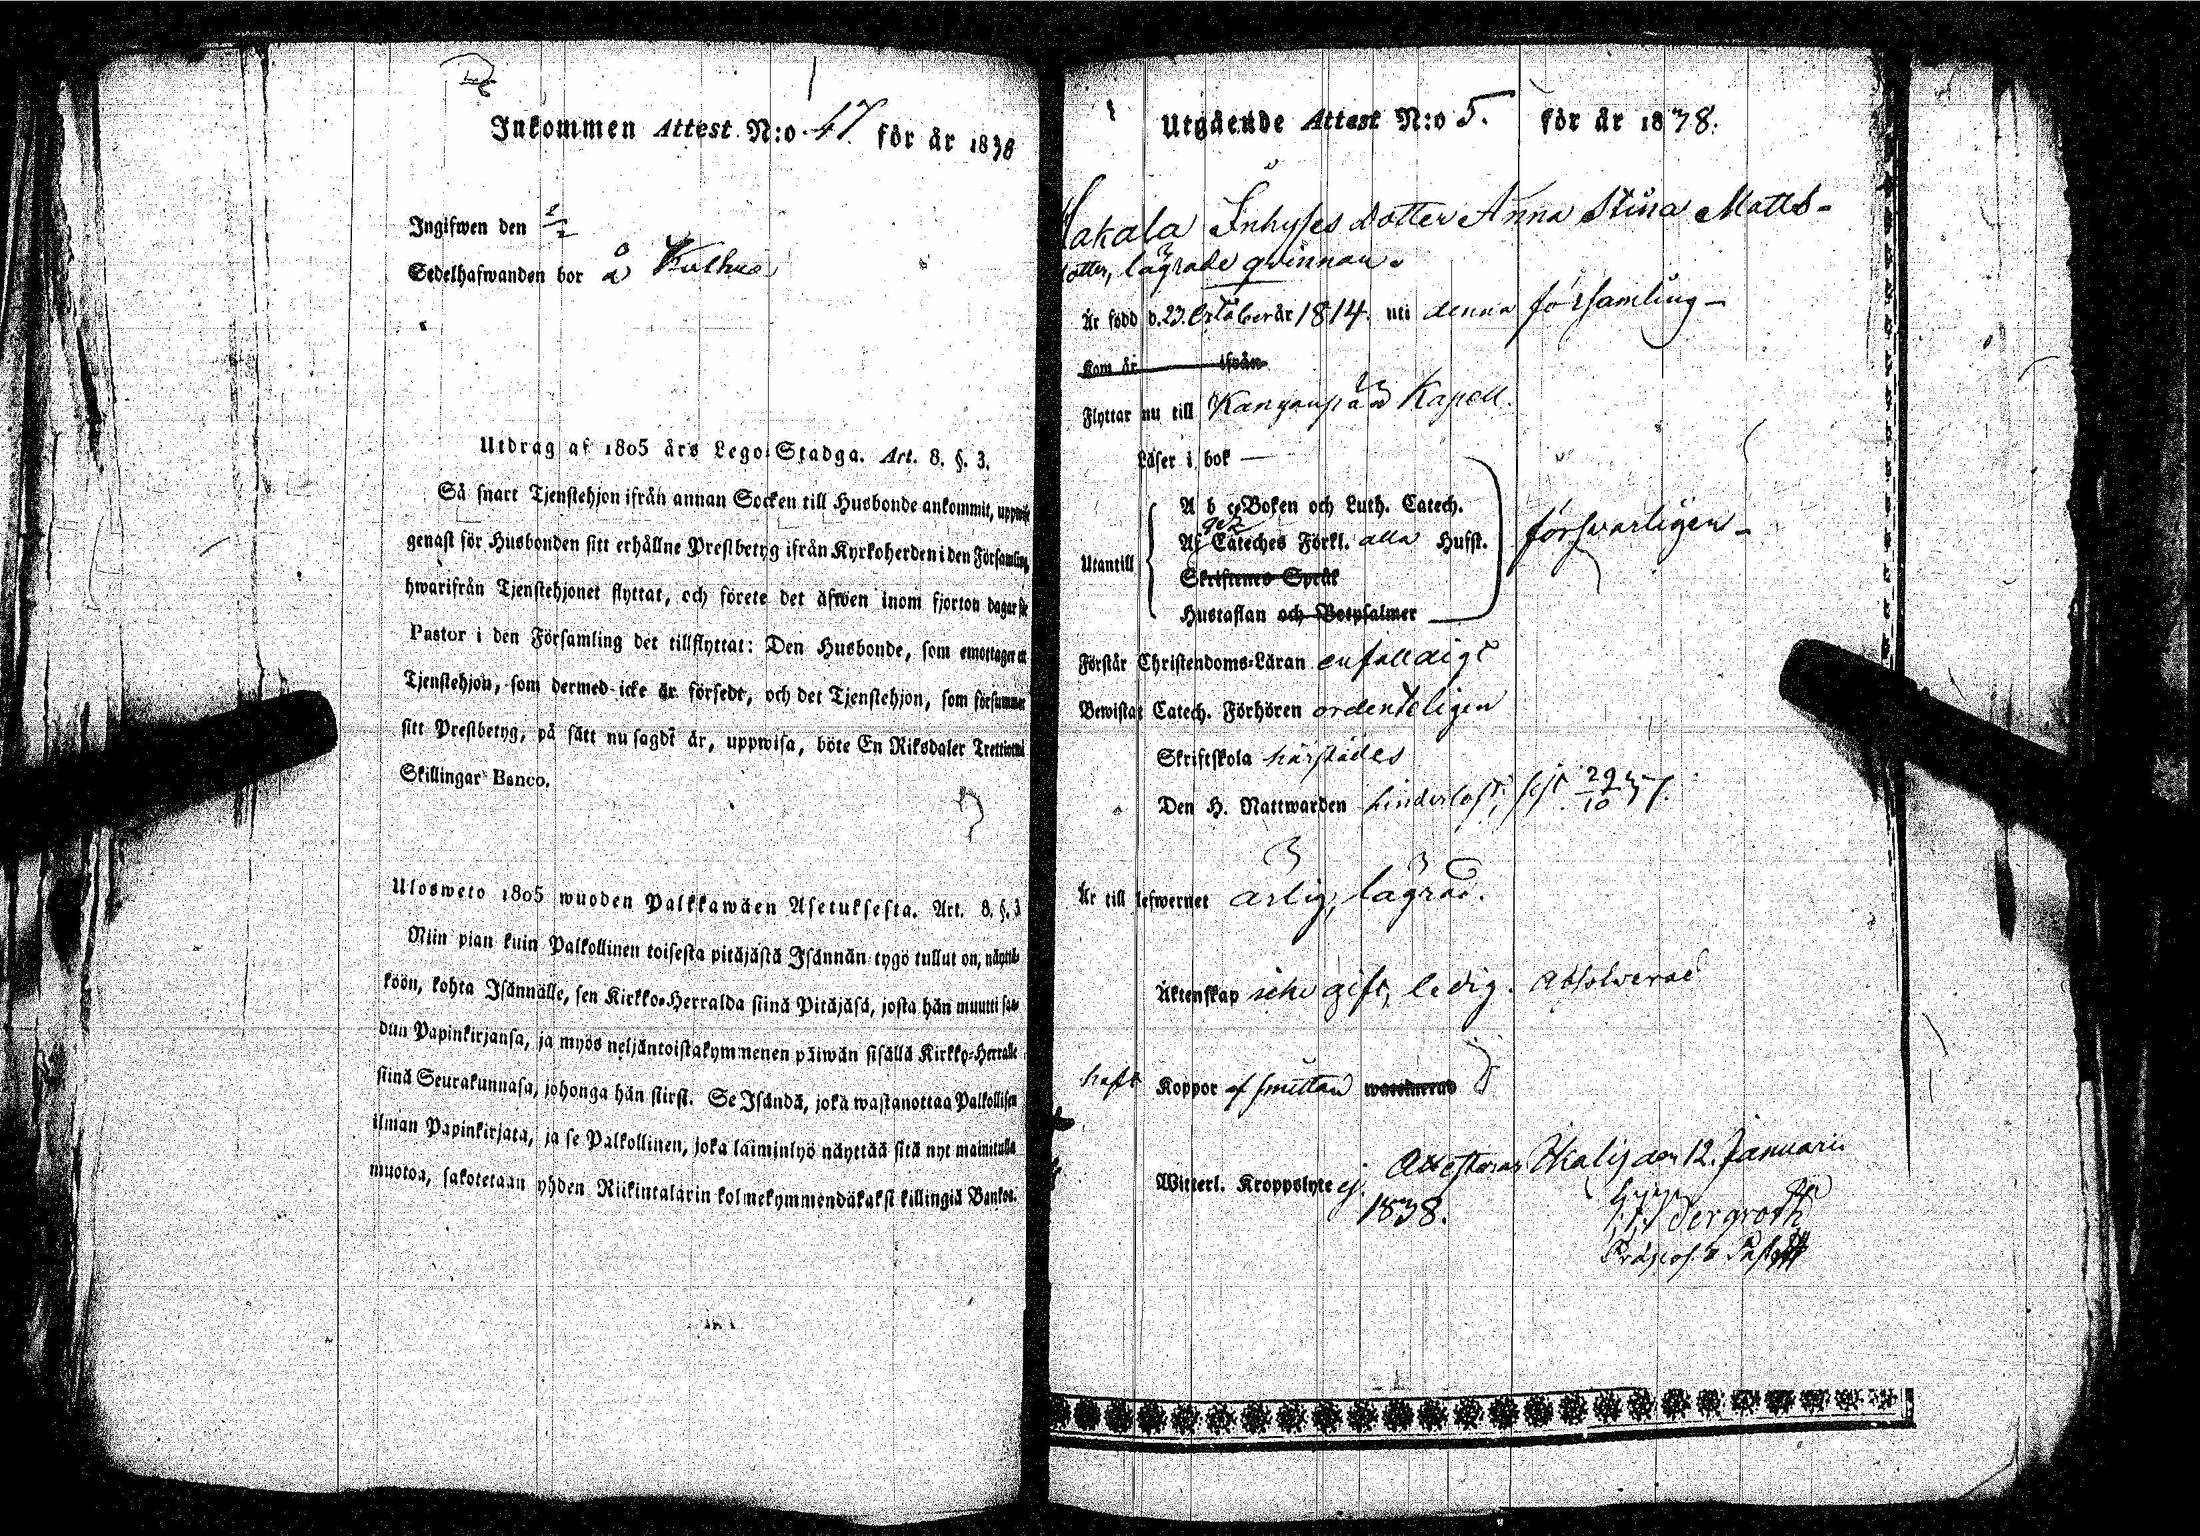 Inkommen Attest N:o 47. för år 1838
Ingifwen den
Sedelhafwanden bor å
Utdrag af 1805 års Lego-Stadga. Art. 8. §. 3.
Så snart Tjenstehjon ifrån annan Socken till Husbonde ankommit, uppwise
genast för Husbonden sitt erhållne Prestbetyg ifrån Kyrkoherden i den Församling
hwarifrån Tjenstehjonet flyttat, och förete det äfwen inom fjorton dagar för
Pastor i den Församling det tillflyttat: Den Husbonde, som emottager ett
Tjenstehjon, som dermed icke är försedt, och det Tjenstehjon, som försummar
sitt Prestbetyg, på sätt nu sagdt är, uppwisa, böte En Riksdaler Trettiotwå
Skillingar Banco.
Ulosweto 1805 wuoden Palkkawäen Asetuksesta. Art. 8. §. 3
Niin pian kuin Palkollinen toisesta pitäjästä Isännän tygö tullut on, näyttä-
köön, kohta Isännälle, sen Kirkko-Herralda siinä Pitäjäsä, josta hän muutti saa-
dun Papinkirjansa, ja myös neljäntoistakymmenen päiwän sisällä Kirkko-Herralle
siinä Seurakunnasa, johonga hän siirsi. Se Isändä, joka wastanottaa Palkollisen
ilman Papinkirjata, ja se Palkollinen, joka laiminlyö näyttää sitä nyt mainitulla
muotoa, sakotetaan yhden Riikintalarin kolmekymmendäkaksi killingiä Bankos.
Utgående Attest N:o 5. för år 1838.
Inhyses dotter Anna Stina Matts-
dotter, lägrade qvinnan.
Är född d. 23. October år 1814. uti denna församling
Kom år ifrån
Flyttar nu till Kangaspää Kapell.
Läser i bok
A b c-Boken och Luth. Catech.
Af Cateches Förkl. alla Hufst. försvarligen
Utantill
Skriftenes Språk
Hustaflan och Botpsalmer
Förstår Christendoms-Läran enfaldigt
Bewistat Catech. Förhören ordenteligen
Skriftskola härstädes
Den H. Nattwarden hinderlöst, sist 29/10 37.
Är till lefwernet ärlig, lägrad.
Äktenskap icke gift, ledig. Absolverad
haft Koppor af smittan waccinerad
Witterl. Kroppslyte ej. Attesteras Ikalis den 12. Januarii
1838. Bergroth